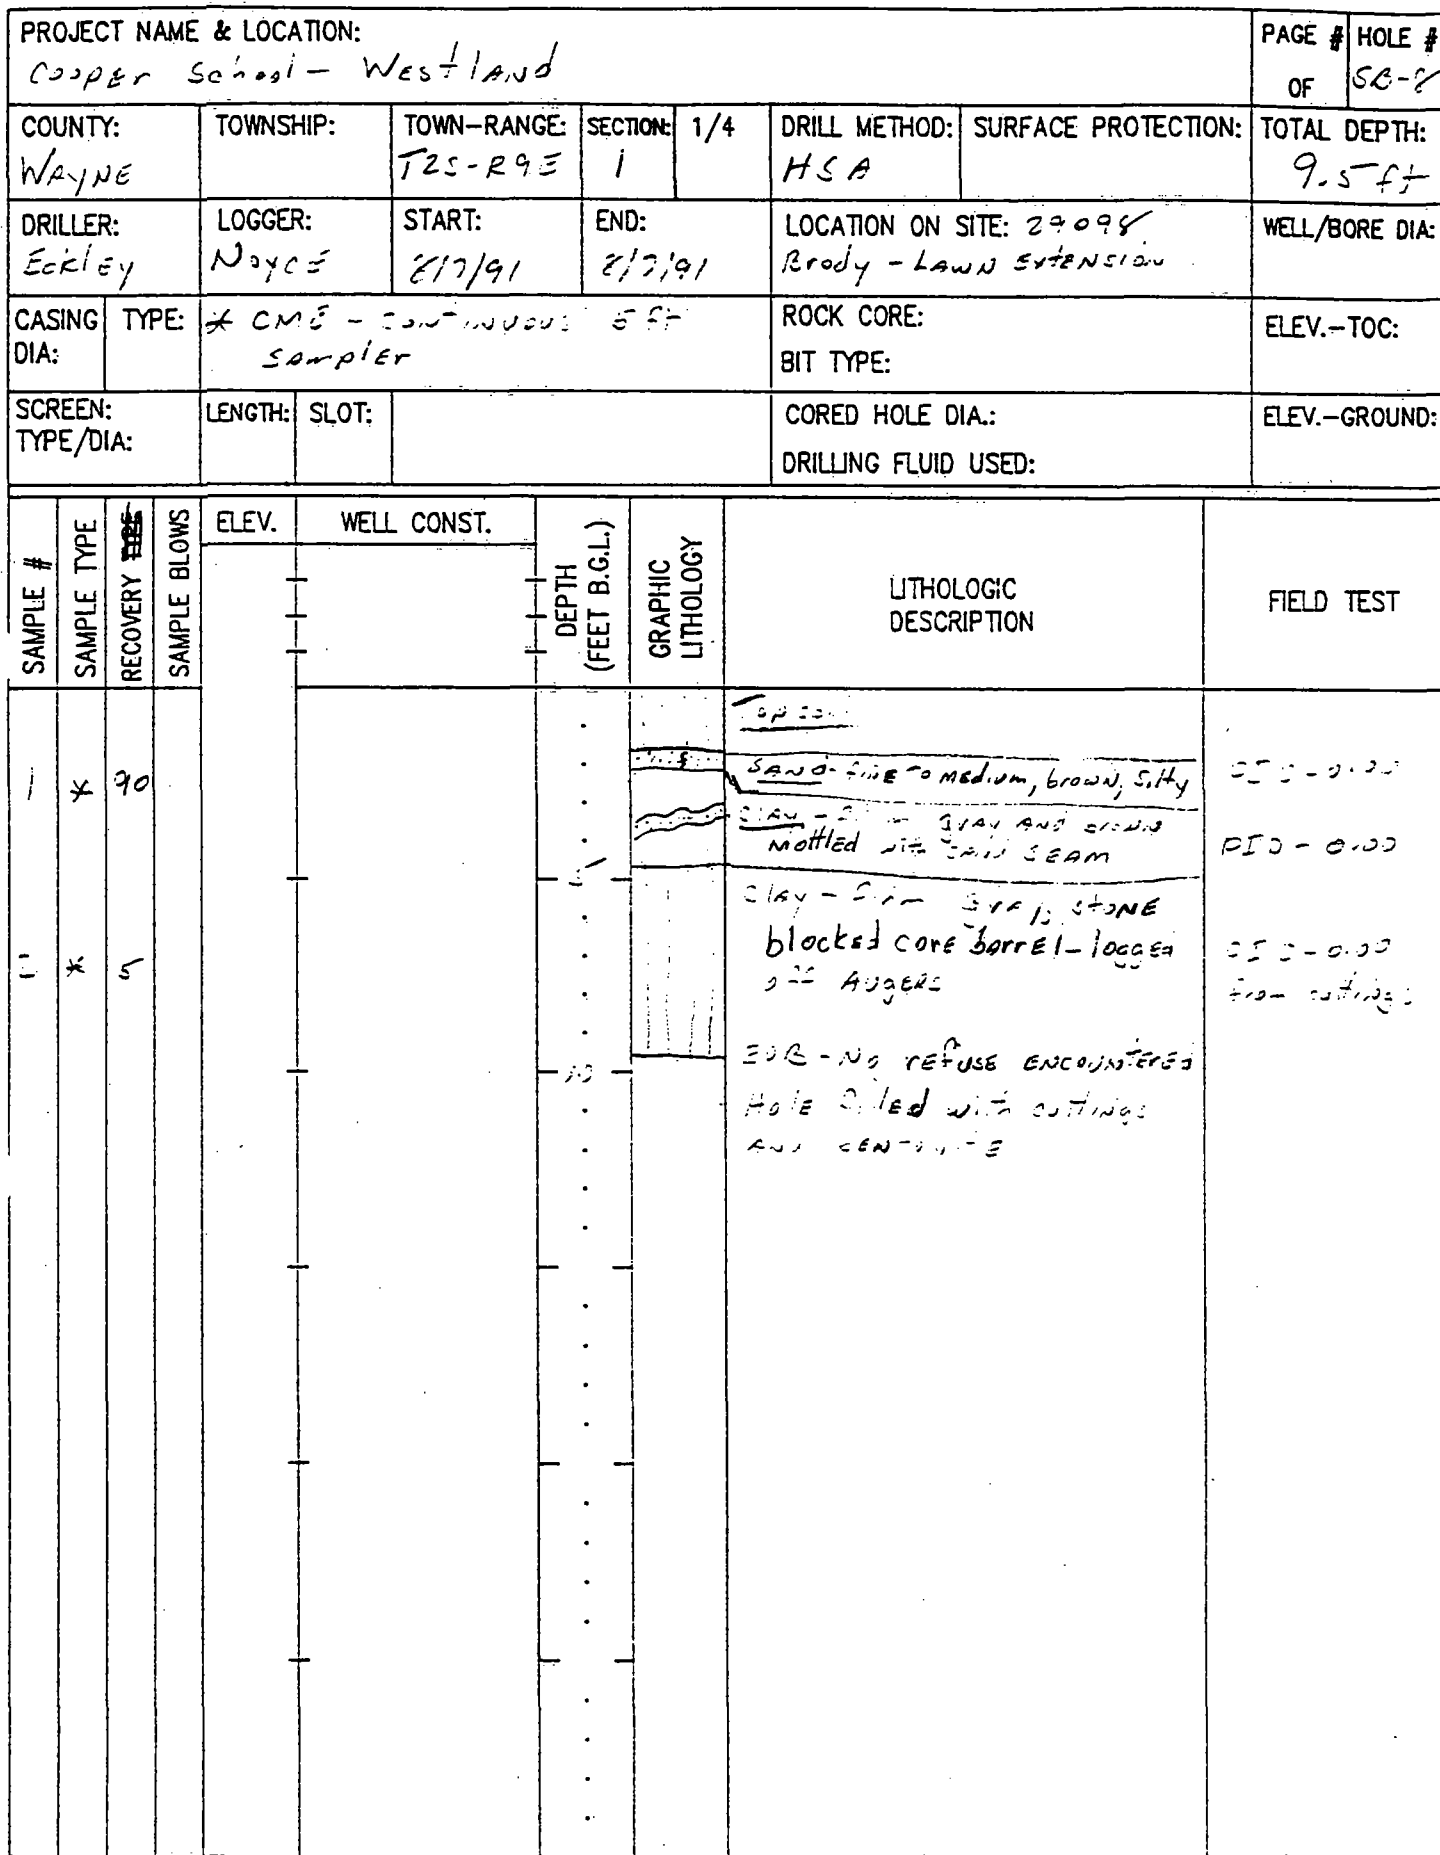 PROJECT NAME & LOCATION:
Cooper School - Westland
PAGE # OF
HOLE # SB-8
COUNTY: WAYNE
TOWNSHIP:
TOWN-RANGE: T2S-R9E
SECTION: 1
1/4
DRILL METHOD: HSA
SURFACE PROTECTION:
TOTAL DEPTH: 9.5 ft
DRILLER: Eckley
LOGGER: Noyce
START: 8/7/91
END: 8/7/91
LOCATION ON SITE: 29098
Brody - LAWN EXTENSION
WELL/BORE DIA:
CASING DIA:
TYPE:
* CME - continuous 5 ft
sampler
ROCK CORE:
BIT TYPE:
ELEV.-TOC:
SCREEN:
TYPE/DIA:
LENGTH:
SLOT:
CORED HOLE DIA.:
DRILLING FLUID USED:
ELEV.-GROUND:
SAMPLE #
SAMPLE TYPE
RECOVERY
SAMPLE BLOWS
ELEV.
WELL CONST.
DEPTH
(FEET B.G.L.)
GRAPHIC
LITHOLOGY
LITHOLOGIC
DESCRIPTION
FIELD TEST
Topsoil
1 * 90
SAND - fine to medium, brown, silty
PID - 0.00
CLAY - firm gray and brown
mottled with sand seam
PID - 0.00
5
Clay - firm gray, stone
blocked core barrel - logged
off Augers
* 5
PID - 0.00
from cuttings
10
EOB - No refuse encountered
Hole filled with cuttings
and bentonite